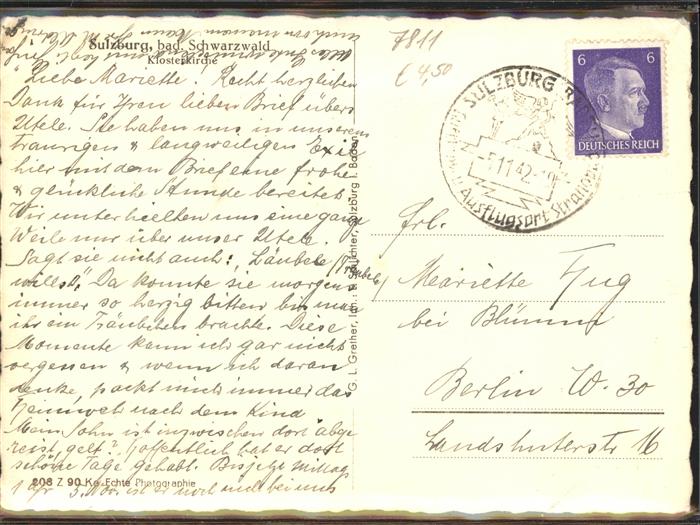 Sulzburg, bad. Schwarzwald
Klosterkirche
Liebe Mariette. Recht herzlichen
Dank für Ihren lieben Brief über
Utele. Sie haben uns in unserem
traurigen & langweiligen Exil
hier mit dem Brief eine frohe
& glückliche Stunde bereitet
Wir unterhielten uns eine ganze
Weile nur über unser Utele.
Sagt sie nicht auch: "Läubele
willst". Da konnte sie morgens
immer so herzig bitten bis man
ihr ein Träubchen brachte. Diese
Momente kann ich gar nicht
vergessen & wenn ich daran
denke, packt mich immer das
Heimweh nach dem Kind
Mein Sohn ist inzwischen dort abge
reist, gelt? Hoffentlich hat er dort
schöne Tage gehabt. Bis jetzt Mittag
1 Uhr 3. Nov. ist er noch nicht bei uns
208 Z 90 Ko Echte Photographie
G. L. Grether, Inh.: Richter, Sulzburg i. Baden
7811
€ 4,50
SULZBURG
5.11.42
Ausflugsort
6 6
DEUTSCHES REICH
Frl.
Mariette Hug
bei Blümm
Berlin W. 30
Landshuterstr 16